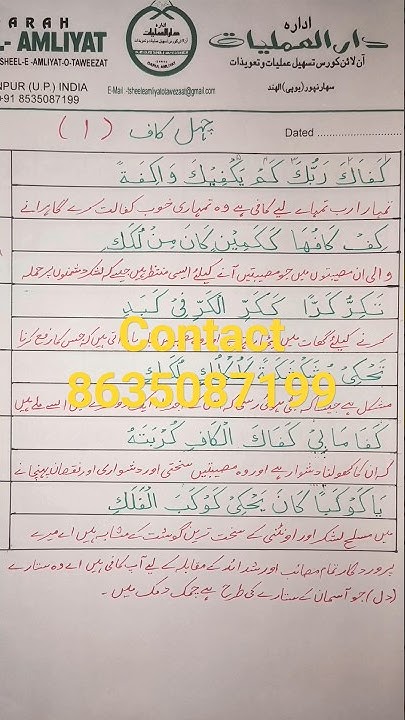 ARAH
L- AMLIYAT
SHEEL-E -AMLIYAT-O-TAWEEZAT
NPUR (U.P.) INDIA
+91 8535087199
E-Mail :-tsheeleamliyatotawezat@gmail.com
ادارہ
دارالعملیات
آن لائن کورس تسهیل عملیات وتعویذات
سہارنپور (یوپی) الہند
Dated
چہل کاف (۱)
كَفَاكَ رَبُّكَ كَمْ يَكْفِيكَ وَاكِفَةً
تمہارا رب تمہارے لیے کافی ہے وہ تمہاری خوب کفالت کرے گا پرانے
كِفْكَافُهَا كَكَمِيْنٍ كَانَ مِنْ لُكَكِ
والی ان مصیبتوں میں جو مصیبتیں آنے کیلئے ایسی منتظر ہیں جیسے کہ لشکر دشمنوں پر حملہ
تَكِرُّ كَرًّا كَكَرِّ الْكَرِّ فِي كَبَدٍ
کرنے کیلئے گھات میں
تَحْكِيْ مُشَكْشَكَةً كَلُكْلُكٍ لُكَكِ
مشکل ہے جیسا کہ
كَفَا مَا بِيْ كَفَاكَ الْكَافُ كُرْبَتَهُ
کہ ان کا کھولنا دشوار ہے اور وہ مصیبتیں سختی اور دشواری اور نقصان پہنچانے
يَا كَوْكَبًا كَانَ يَحْكِيْ كَوْكَبَ الْفَلَكِ
میں مسلح لشکر اور اونٹنی کے سخت ترین گوشت کے مشابہ ہیں اے میرے
پروردگار تمام مصائب اور شدائد کے مقابلہ کے لیے آپ کافی ہیں اے وہ ستارے
(دل) جو آسمان کے ستارے کی طرح ہے چمک دمک میں۔
Contact
8635087199